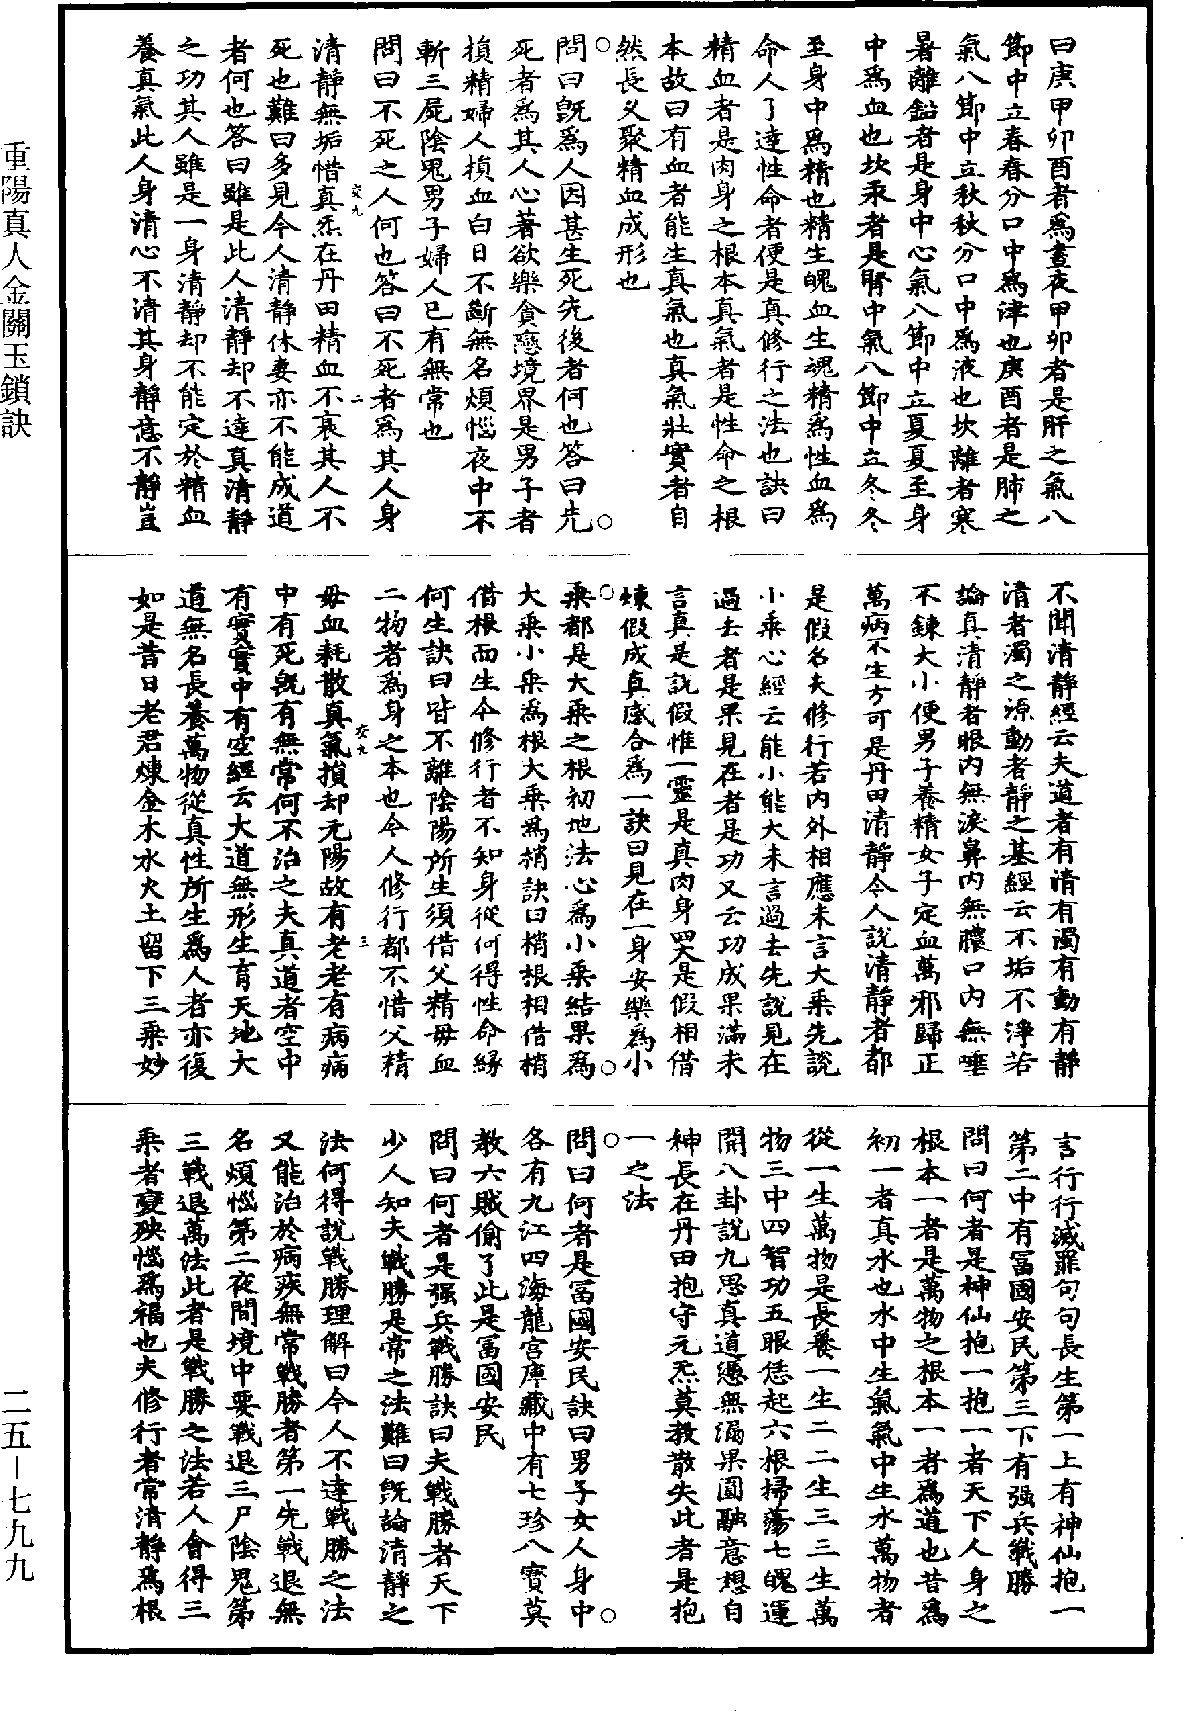 曰庚甲卯酉者爲晝夜甲卯者是肝之氣八
節中立春春分口中爲津也庚酉者是肺之
氣八節中立秋秋分口中爲液也坎離者寒
暑離鉛者是身中心氣八節中立夏夏至身
中爲血也坎汞者是腎中氣八節中立冬冬
至身中爲精也精生魄血生魂精爲性血爲
命人了達性命者便是真修行之法也訣曰
精血者是肉身之根本真氣者是性命之根
本故曰有血者能生真氣也真氣壯實者自
然長久聚精血成形也
問曰旣爲人因甚生死先後者何也答曰先
死者爲其人心著欲樂貪戀境界是男子者
損精婦人損血白日不斷無名煩惱夜中不
斬三屍陰鬼男子婦人已有無常也
問曰不死之人何也答曰不死者爲其人身
清靜無垢惜真炁在丹田精血不衰其人不
死也難曰多見今人清靜休妻亦不能成道
者何也答曰雖是此人清靜却不達真清靜
之功其人雖是一身清靜却不能定於精血
養真氣此人身清心不清其身靜意不靜豈
不聞清靜經云夫道者有清有濁有動有靜
清者濁之源動者靜之基經云不垢不淨若
論真清靜者眼内無淚鼻内無膿口内無唾
不鍊大小便男子養精女子定血萬邪歸正
萬病不生方可是丹田清靜今人說清靜者都
是假名夫修行若内外相應未言大乘先說
小乘心經云能小能大未言過去先說見在
過去者是果見在者是功又云功成果滿未
言真是說假惟一靈是真肉身四大是假相借
煉假成真感合爲一訣曰見在一身安樂爲小
乘都是大乘之根初地法心爲小乘結果爲
大乘小乘爲根大乘爲梢訣曰梢根相借梢
借根而生今修行者不知身從何得性命緣
何生訣曰皆不離陰陽所生須借父精母血
二物者爲身之本也今人修行都不惜父精
母血耗散真氣損却元陽故有老老有病病
中有死旣有無常何不治之夫真道者空中
有實實中有空經云大道無形生育天地大
道無名長養萬物從真性所生爲人者亦復
如是昔日老君煉金木水火土留下三乘妙
言行行滅罪句句長生第一上有神仙抱一
第二中有富國安民第三下有强兵戰勝
問曰何者是神仙抱一抱一者天下人身之
根本一者是萬物之根本一者爲道也昔爲
初一者真水也水中生氣氣中生水萬物者
從一生萬物是長養一生二二生三三生萬
物三中四智功五眼恁起六根掃蕩七魄運
開八卦說九思真道還無漏果圓融意想自
神長在丹田抱守元炁莫教散失此者是抱
一之法
問曰何者是富國安民訣曰男子女人身中
各有九江四海龍宫庫藏中有七珍八寳莫
教六賊偷了此是富國安民
問曰何者是强兵戰勝訣曰夫戰勝者天下
少人知夫戰勝是常之法難曰旣論清靜之
法何得說戰勝理解曰今人不達戰勝之法
又能治於病疾無常戰勝者第一先戰退無
名煩惱第二夜間境中要戰退三尸陰鬼第
三戰退萬法此者是戰勝之法若人會得三
乘者變殃惱爲福也夫修行者常清靜爲根
重陽真人金關玉鎖訣
二五－七九九